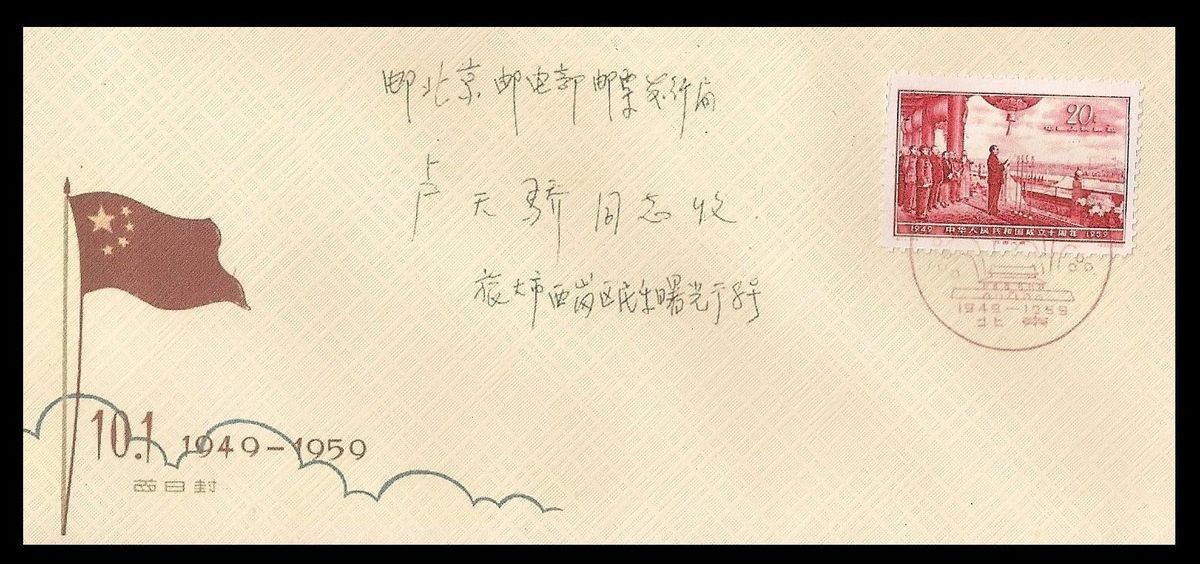 邮北京邮电部邮票发行局
卢天骄同志收.
旅大市西岗区民生曙光
20
1949 中华人民共和国成立十周年 1959
1949—1959
北京
10.1 1949-1959
首日封